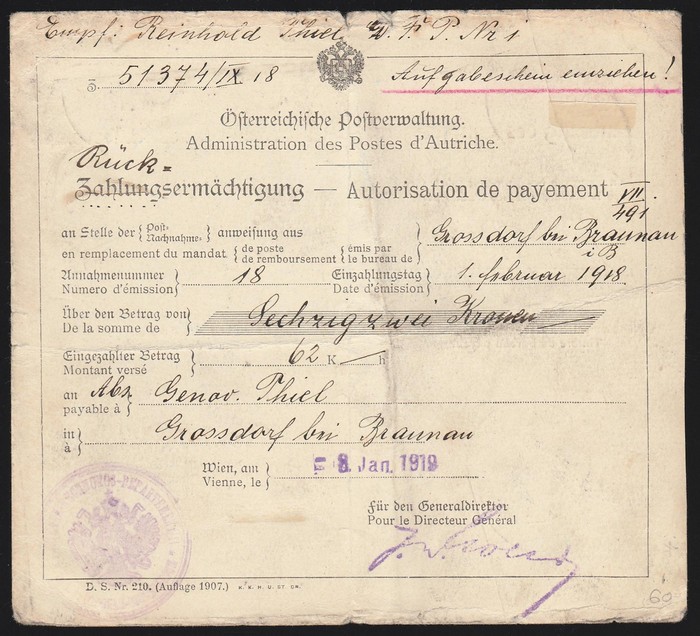 Empf: Reinhold Thiel, K. F. P. Nr 1
Z. 51374/IX 18
Aufgabeschein einziehen!
Österreichische Postverwaltung.
Administration des Postes d'Autriche.
Rück=
Zahlungsermächtigung — Autorisation de payement VII/491
an Stelle der {Post- Nachnahme-} anweisung aus
en remplacement du mandat {de poste de remboursement {émis par le bureau de} Grossdorf bei Braunau i B
Annahmenummer Numero d'émission} 18 Einzahlungstag Date d'émission} 1. februar 1918
Über den Betrag von De la somme de} Sechzigzwei Kronen
Eingezahlter Betrag Montant versé} 62 K — h
an Abs. payable à} Genov. Thiel
in à} Grossdorf bei Braunau
Wien, am Vienne, le} 8. Jan. 1919
für den Generaldirektor
Pour le Directeur Général
D. S. Nr. 210. (Auflage 1907.) K. K. H. U. ST. DR.
60